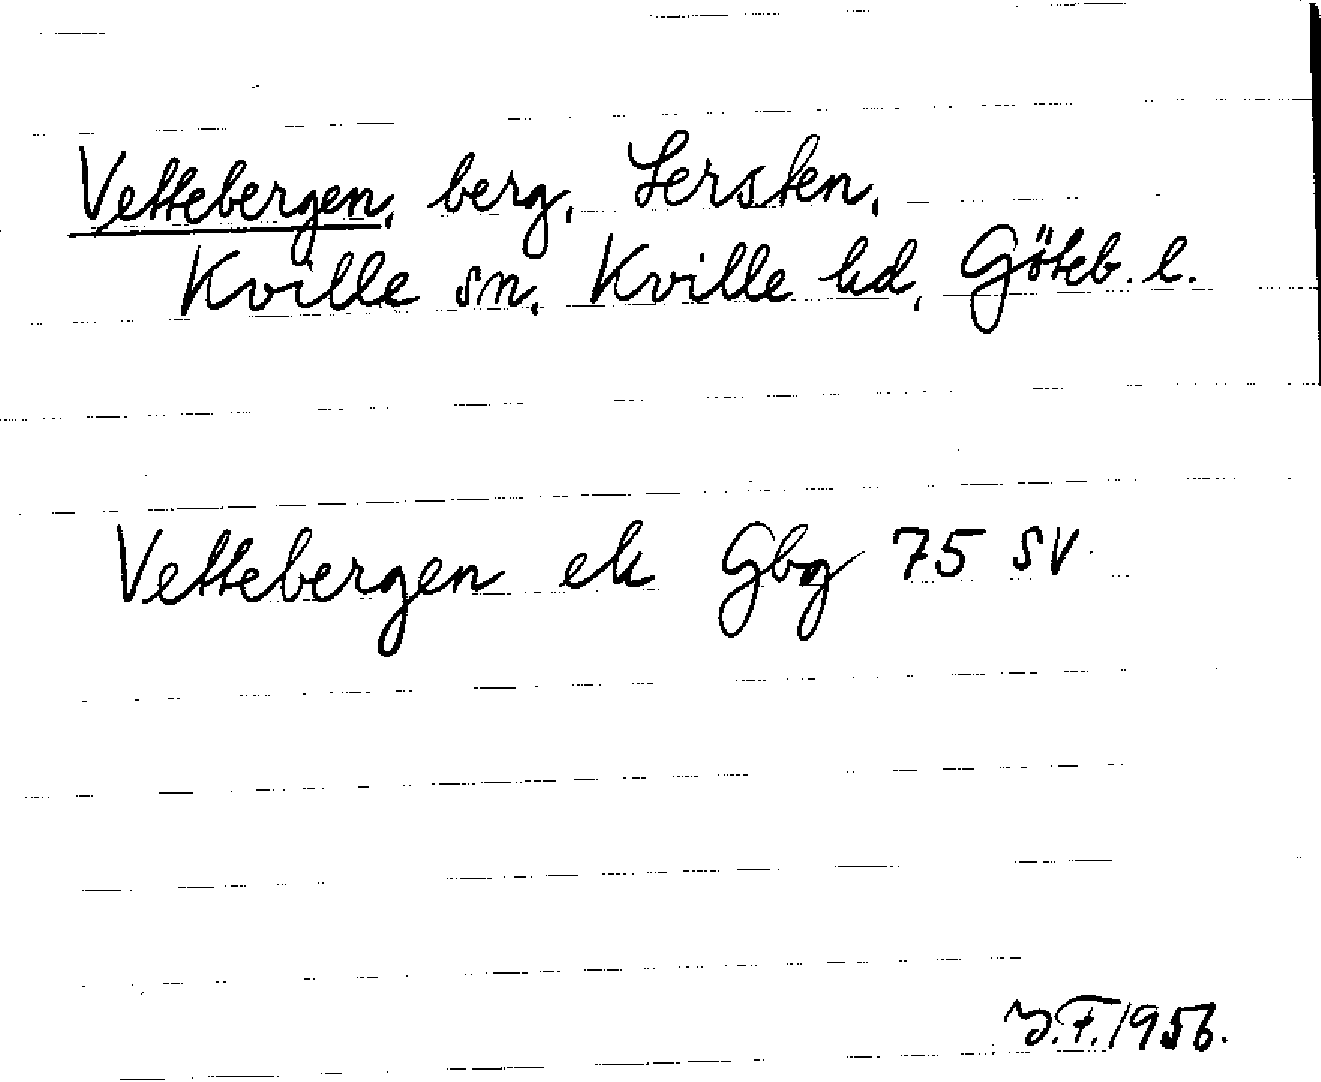 Vettebergen, berg, Lersten,
Kville sn, Kville hd, Göteb. l.
Vettebergen ek Gbg 75 SV
F. 1956.